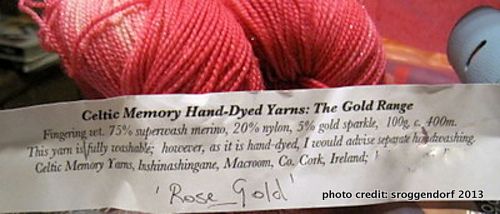 Celtic Memory Hand-Dyed Yarns: The Gold Range
Fingering wt. 75% superwash merino, 20% nylon, 5% gold sparkle, 100g, c. 400m.
This yarn is fully washable; however, as it is hand-dyed, I would advise separate handwashing.
Celtic Memory Yarns, Inshinashingane, Macroom, Co. Cork, Ireland;
'Rose Gold'
photo credit: sroggendorf 2013